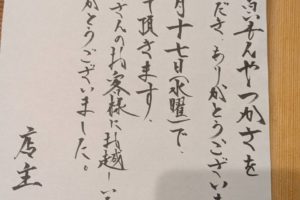 せんやつかさを
ださりありがとうございま
月十七日(水曜)で
て頂きます。
さんのお客様にお越しい
がとうございました。
店主